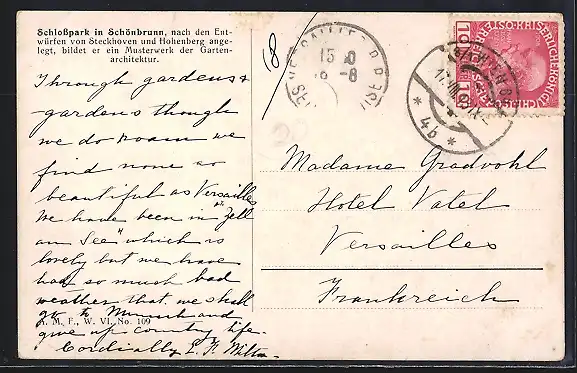 Schloßpark in Schönbrunn, nach den Ent-
würfen von Steckhoven und Hohenberg ange-
legt, bildet er ein Musterwerk der Garten-
architektur.
Through gardens &
gardens though
we do roam we
find none so
beautiful as Versailles
We have been in "Zell
am See" which is
lovely but we have
had so much bad
weather that we shall
go to Munich and
A. M. F., W. VI, No. 109
give up country life.
Cordially E. H.
8
15
8
KAISERLICHE KÖNIGL
10
10
4b
Madame Gradvohl
Hotel Vatel
Versailles
Frankreich